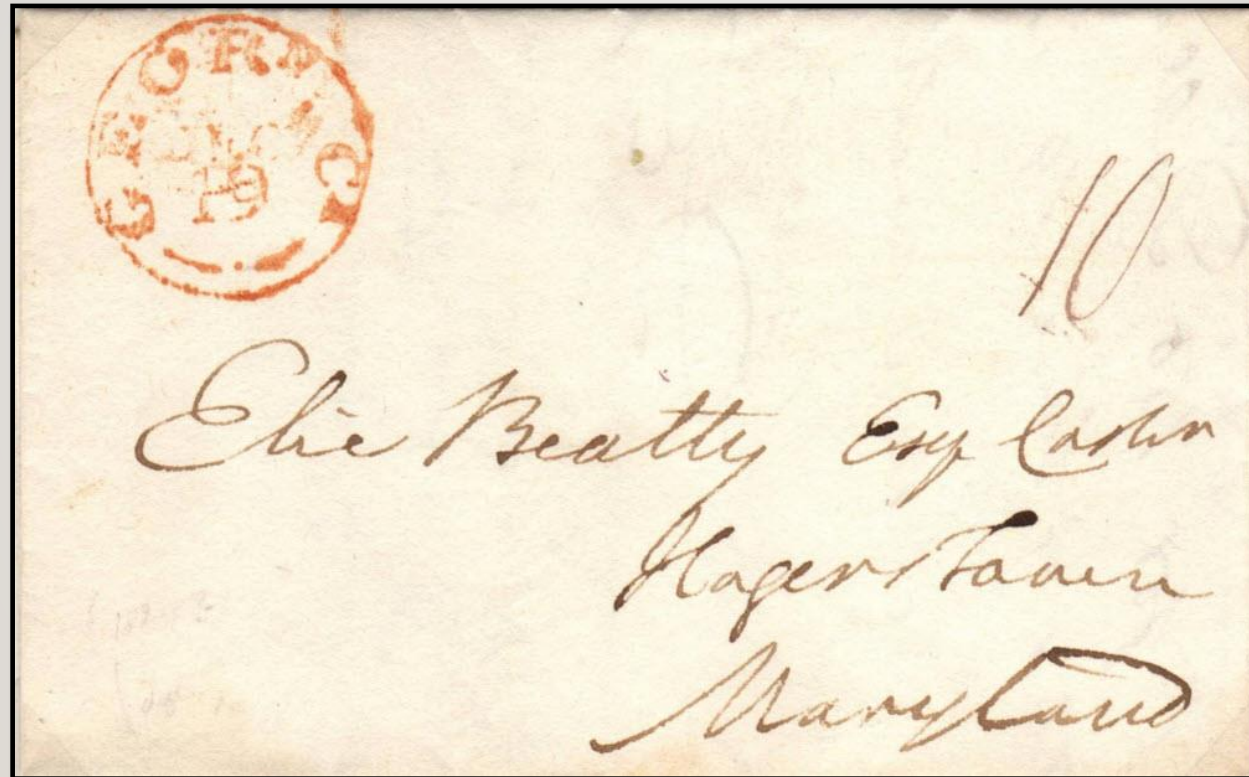 GEORG. C.
19
10
Elie Beatty Esq Cashr
Hagerstown
Maryland